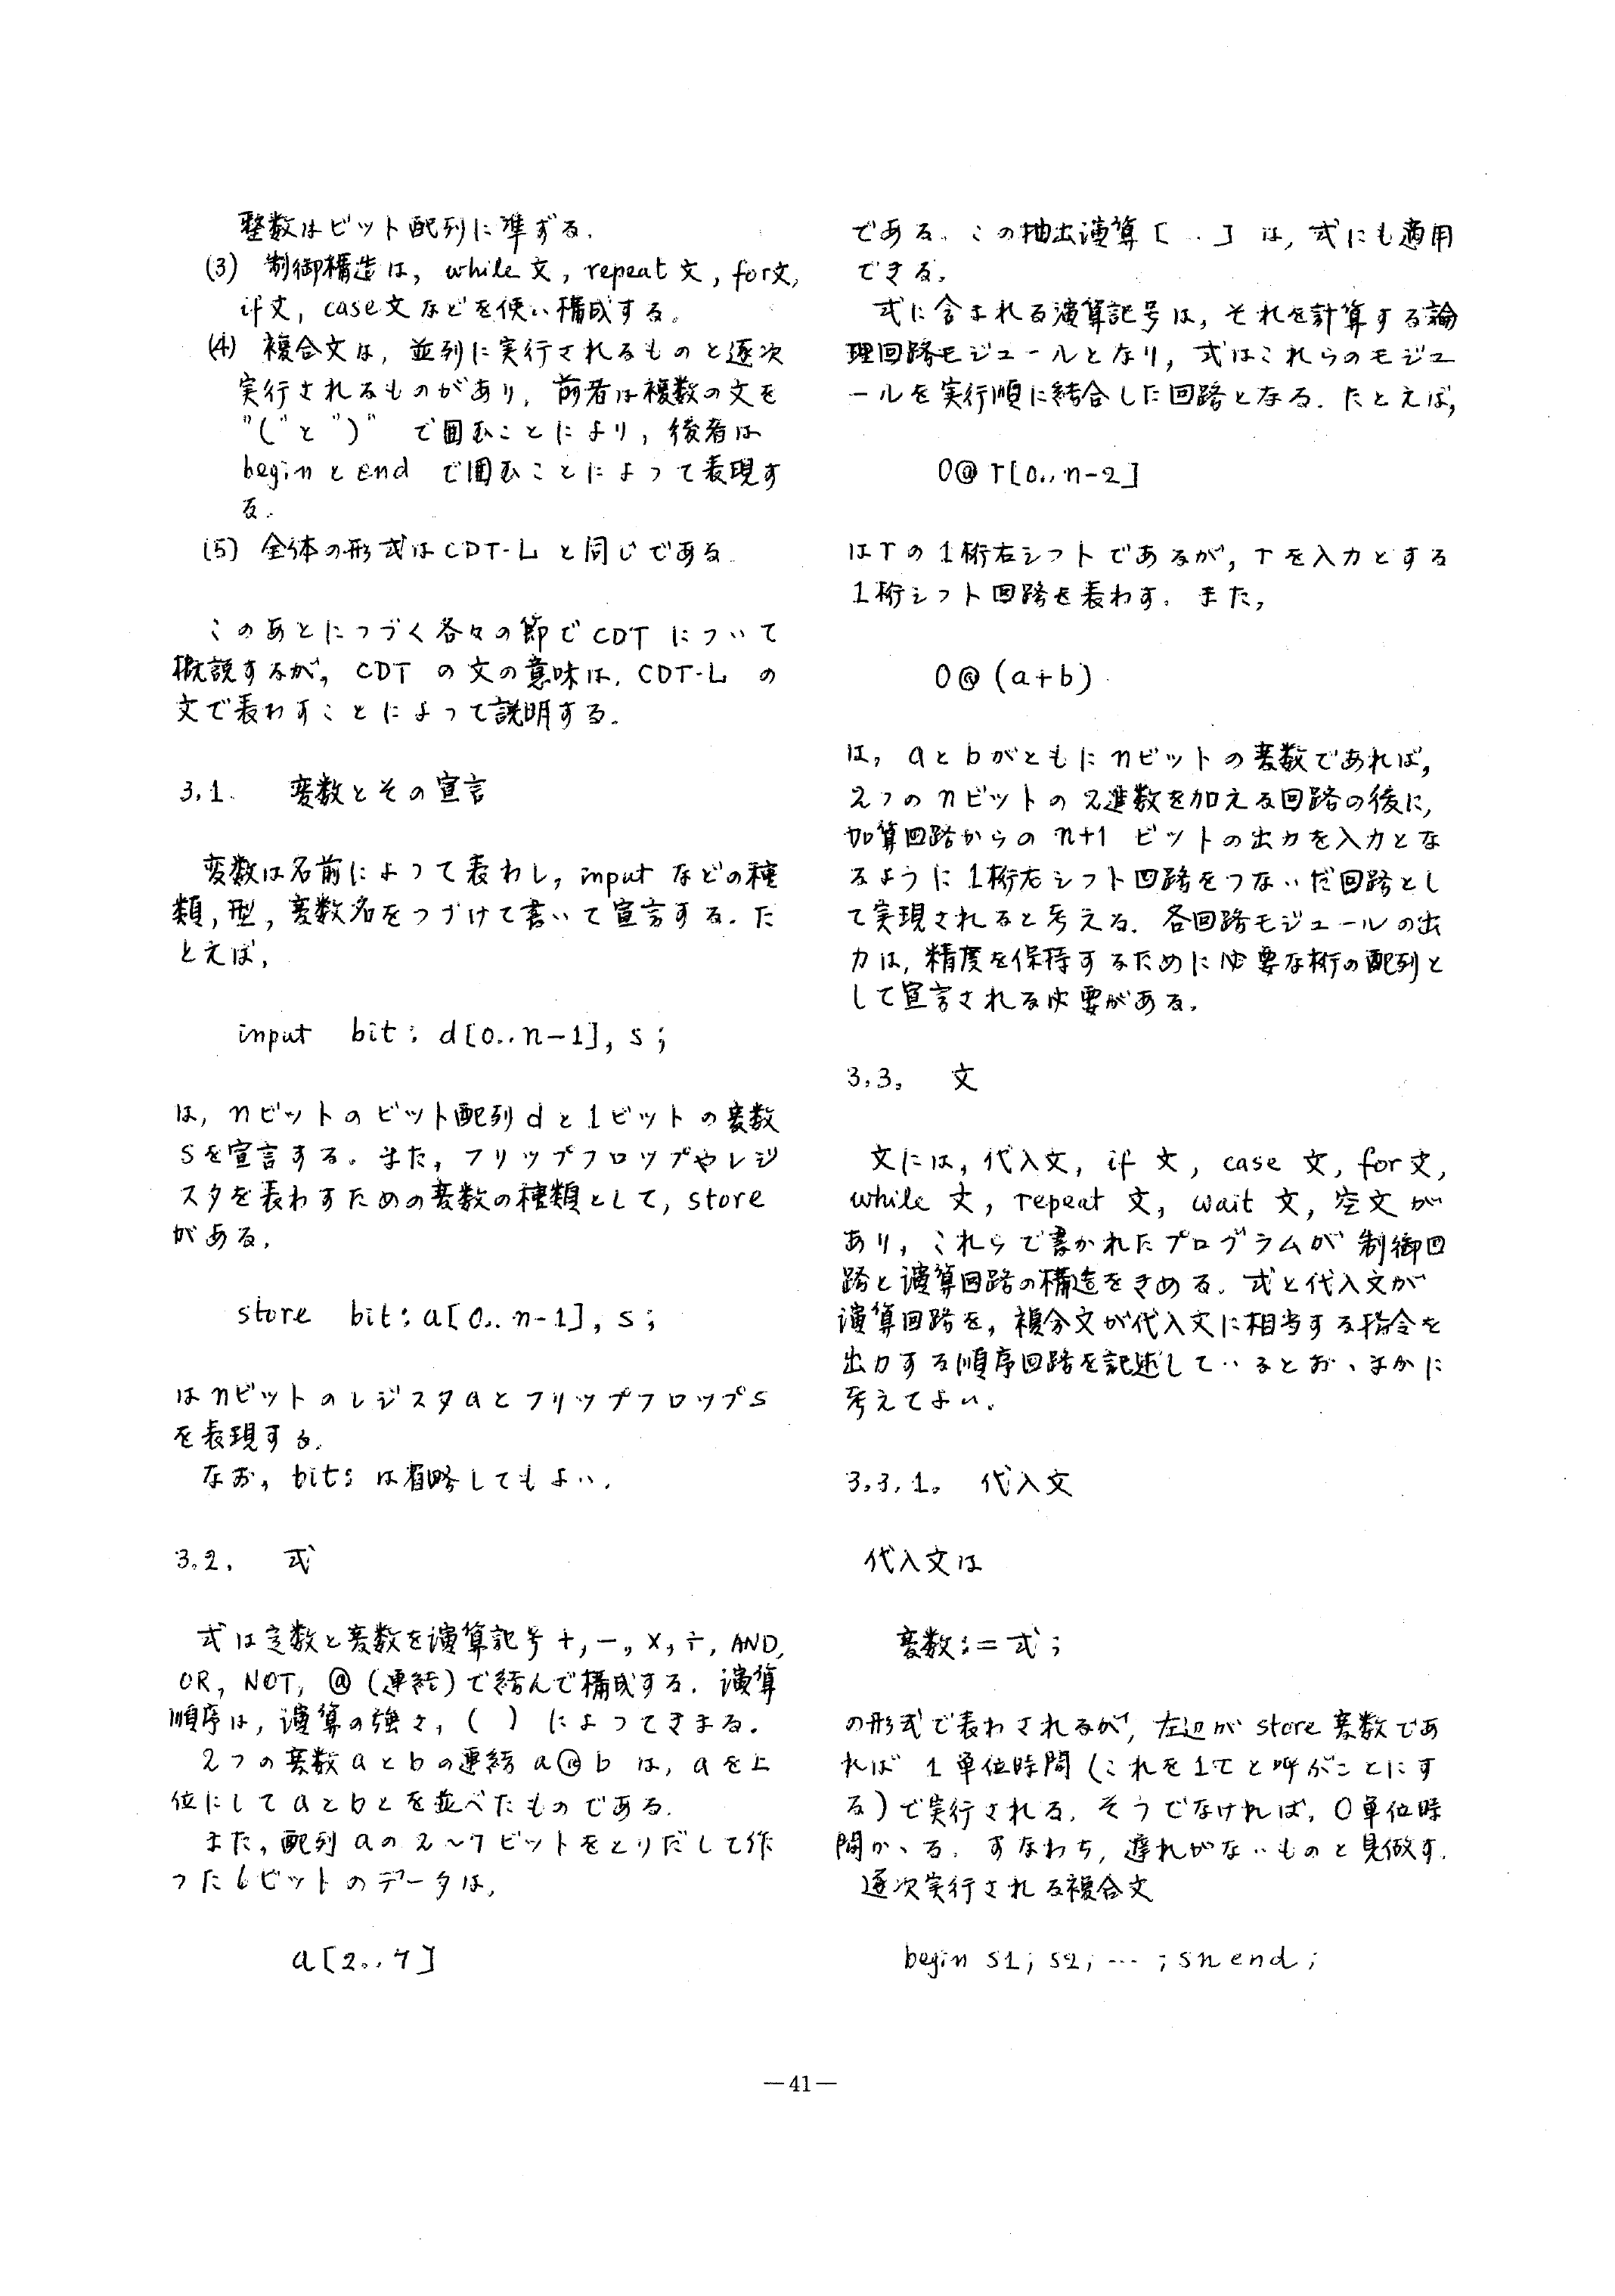 整数はビット配列に準ずる.
(3) 制御構造は, while文, repeat文, for文,
if文, case文などを使い構成する。
(4) 複合文は, 並列に実行されるものと逐次
実行されるものがあり, 前者は複数の文を
"("と")" で囲むことにより, 後者は
beginとend で囲むことによって表現す
る.
(5) 全体の形式はCDT-Lと同じである.
このあとにつづく各々の節でCDTについて
概説するが, CDTの文の意味は, CDT-Lの
文で表わすことによって説明する.
3.1. 変数とその宣言
変数は名前によって表わし, inputなどの種
類, 型, 変数名をつづけて書いて宣言する. た
とえば,
input bit: d[0..n-1], s;
は, nビットのビット配列dと1ビットの変数
sを宣言する。また, フリップフロップやレジ
スタを表わすための変数の種類として, store
がある.
store bit: a[0..n-1], s;
はnビットのレジスタaとフリップフロップs
を表現する.
なお, bit: は省略してもよい.
3.2. 式
式は定数と変数を演算記号+, -, ×, ÷, AND,
OR, NOT, @ (連結)で結んで構成する. 演算
順序は, 演算の強さ, ( ) によってきまる.
2つの変数aとbの連結a@bは, aを上
位にしてaとbとを並べたものである.
また, 配列aの2~7ビットをとりだして作
った6ビットのデータは,
a[2..7]
である. この抽出演算[ .. ] は, 式にも適用
できる.
式に含まれる演算記号は, それを計算する論
理回路モジュールとなり, 式はこれらのモジュ
ールを実行順に結合した回路となる. たとえば,
0@r[0..n-2]
はrの1桁右シフトであるが, rを入力とする
1桁シフト回路を表わす. また,
0@(a+b)
は, aとbがともにnビットの変数であれば,
2つのnビットの2進数を加える回路の後に,
加算回路からのn+1ビットの出力を入力とな
るように1桁右シフト回路をつないだ回路とし
て実現されると考える. 各回路モジュールの出
力は, 精度を保持するために必要な桁の配列と
して宣言される必要がある.
3.3. 文
文には, 代入文, if文, case文, for文,
while文, repeat文, wait文, 空文が
あり, これらで書かれたプログラムが制御回
路と演算回路の構造をきめる. 式と代入文が
演算回路を, 複合文が代入文に相当する指令を
出力する順序回路を記述しているとおゝまかに
考えてよい.
3.3.1. 代入文
代入文は
変数:=式;
の形式で表わされるが, 左辺がstore変数であ
れば1単位時間(これを1τと呼ぶことにす
る)で実行される. そうでなければ, 0単位時
間かゝる. すなわち, 遅れがないものと見做す.
逐次実行される複合文
begin s1; s2; … ; sn end;
—41—